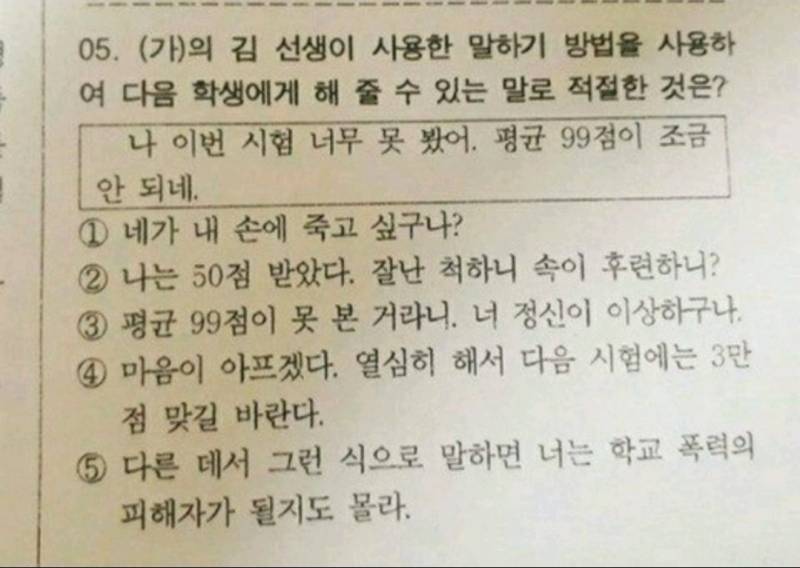 05. (가)의 김 선생이 사용한 말하기 방법을 사용하
여 다음 학생에게 해 줄 수 있는 말로 적절한 것은?
나 이번 시험 너무 못 봤어. 평균 99점이 조금
안 되네.
① 네가 내 손에 죽고 싶구나?
② 나는 50점 받았다. 잘난 척하니 속이 후련하니?
③ 평균 99점이 못 본 거라니. 너 정신이 이상하구나.
④ 마음이 아프겠다. 열심히 해서 다음 시험에는 3만
점 맞길 바란다.
⑤ 다른 데서 그런 식으로 말하면 너는 학교 폭력의
피해자가 될지도 몰라.